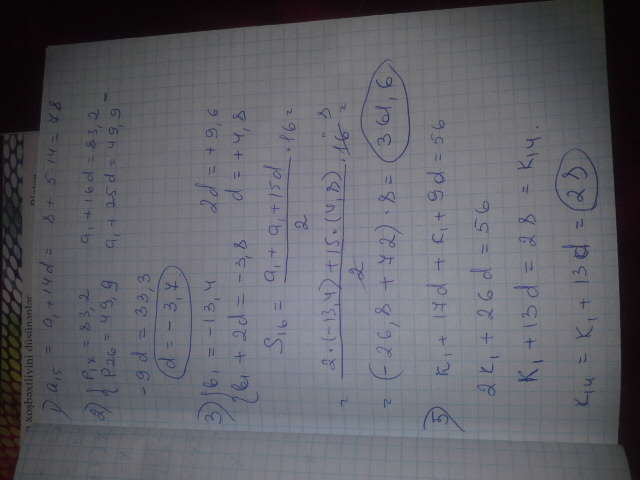 xoşbəxtliyini düşünənlər
1) a₁₅ = a₁ + 14d = 8 + 5·14 = 78
2) { P₁₇ = 83,2 a₁ + 16d = 83,2
{ P26 = 49,9 a₁ + 25d = 49,9 -
-9d = 33,3
d = -3,7
3) { b₁ = -13,4 2d = +9,6
{ b₁ + 2d = -3,8 d = +4,8
S₁₆ = (a₁ + a₁ + 15d)/2 · 16 =
= (2·(-13,4) + 15·(4,8))/2 · 16 8 =
= (-26,8 + 72) · 8 = 361,6
5) K₁ + 17d + K₁ + 9d = 56
2K₁ + 26d = 56
K₁ + 13d = 28 = K₁₄.
K₁₄ = K₁ + 13d = 28